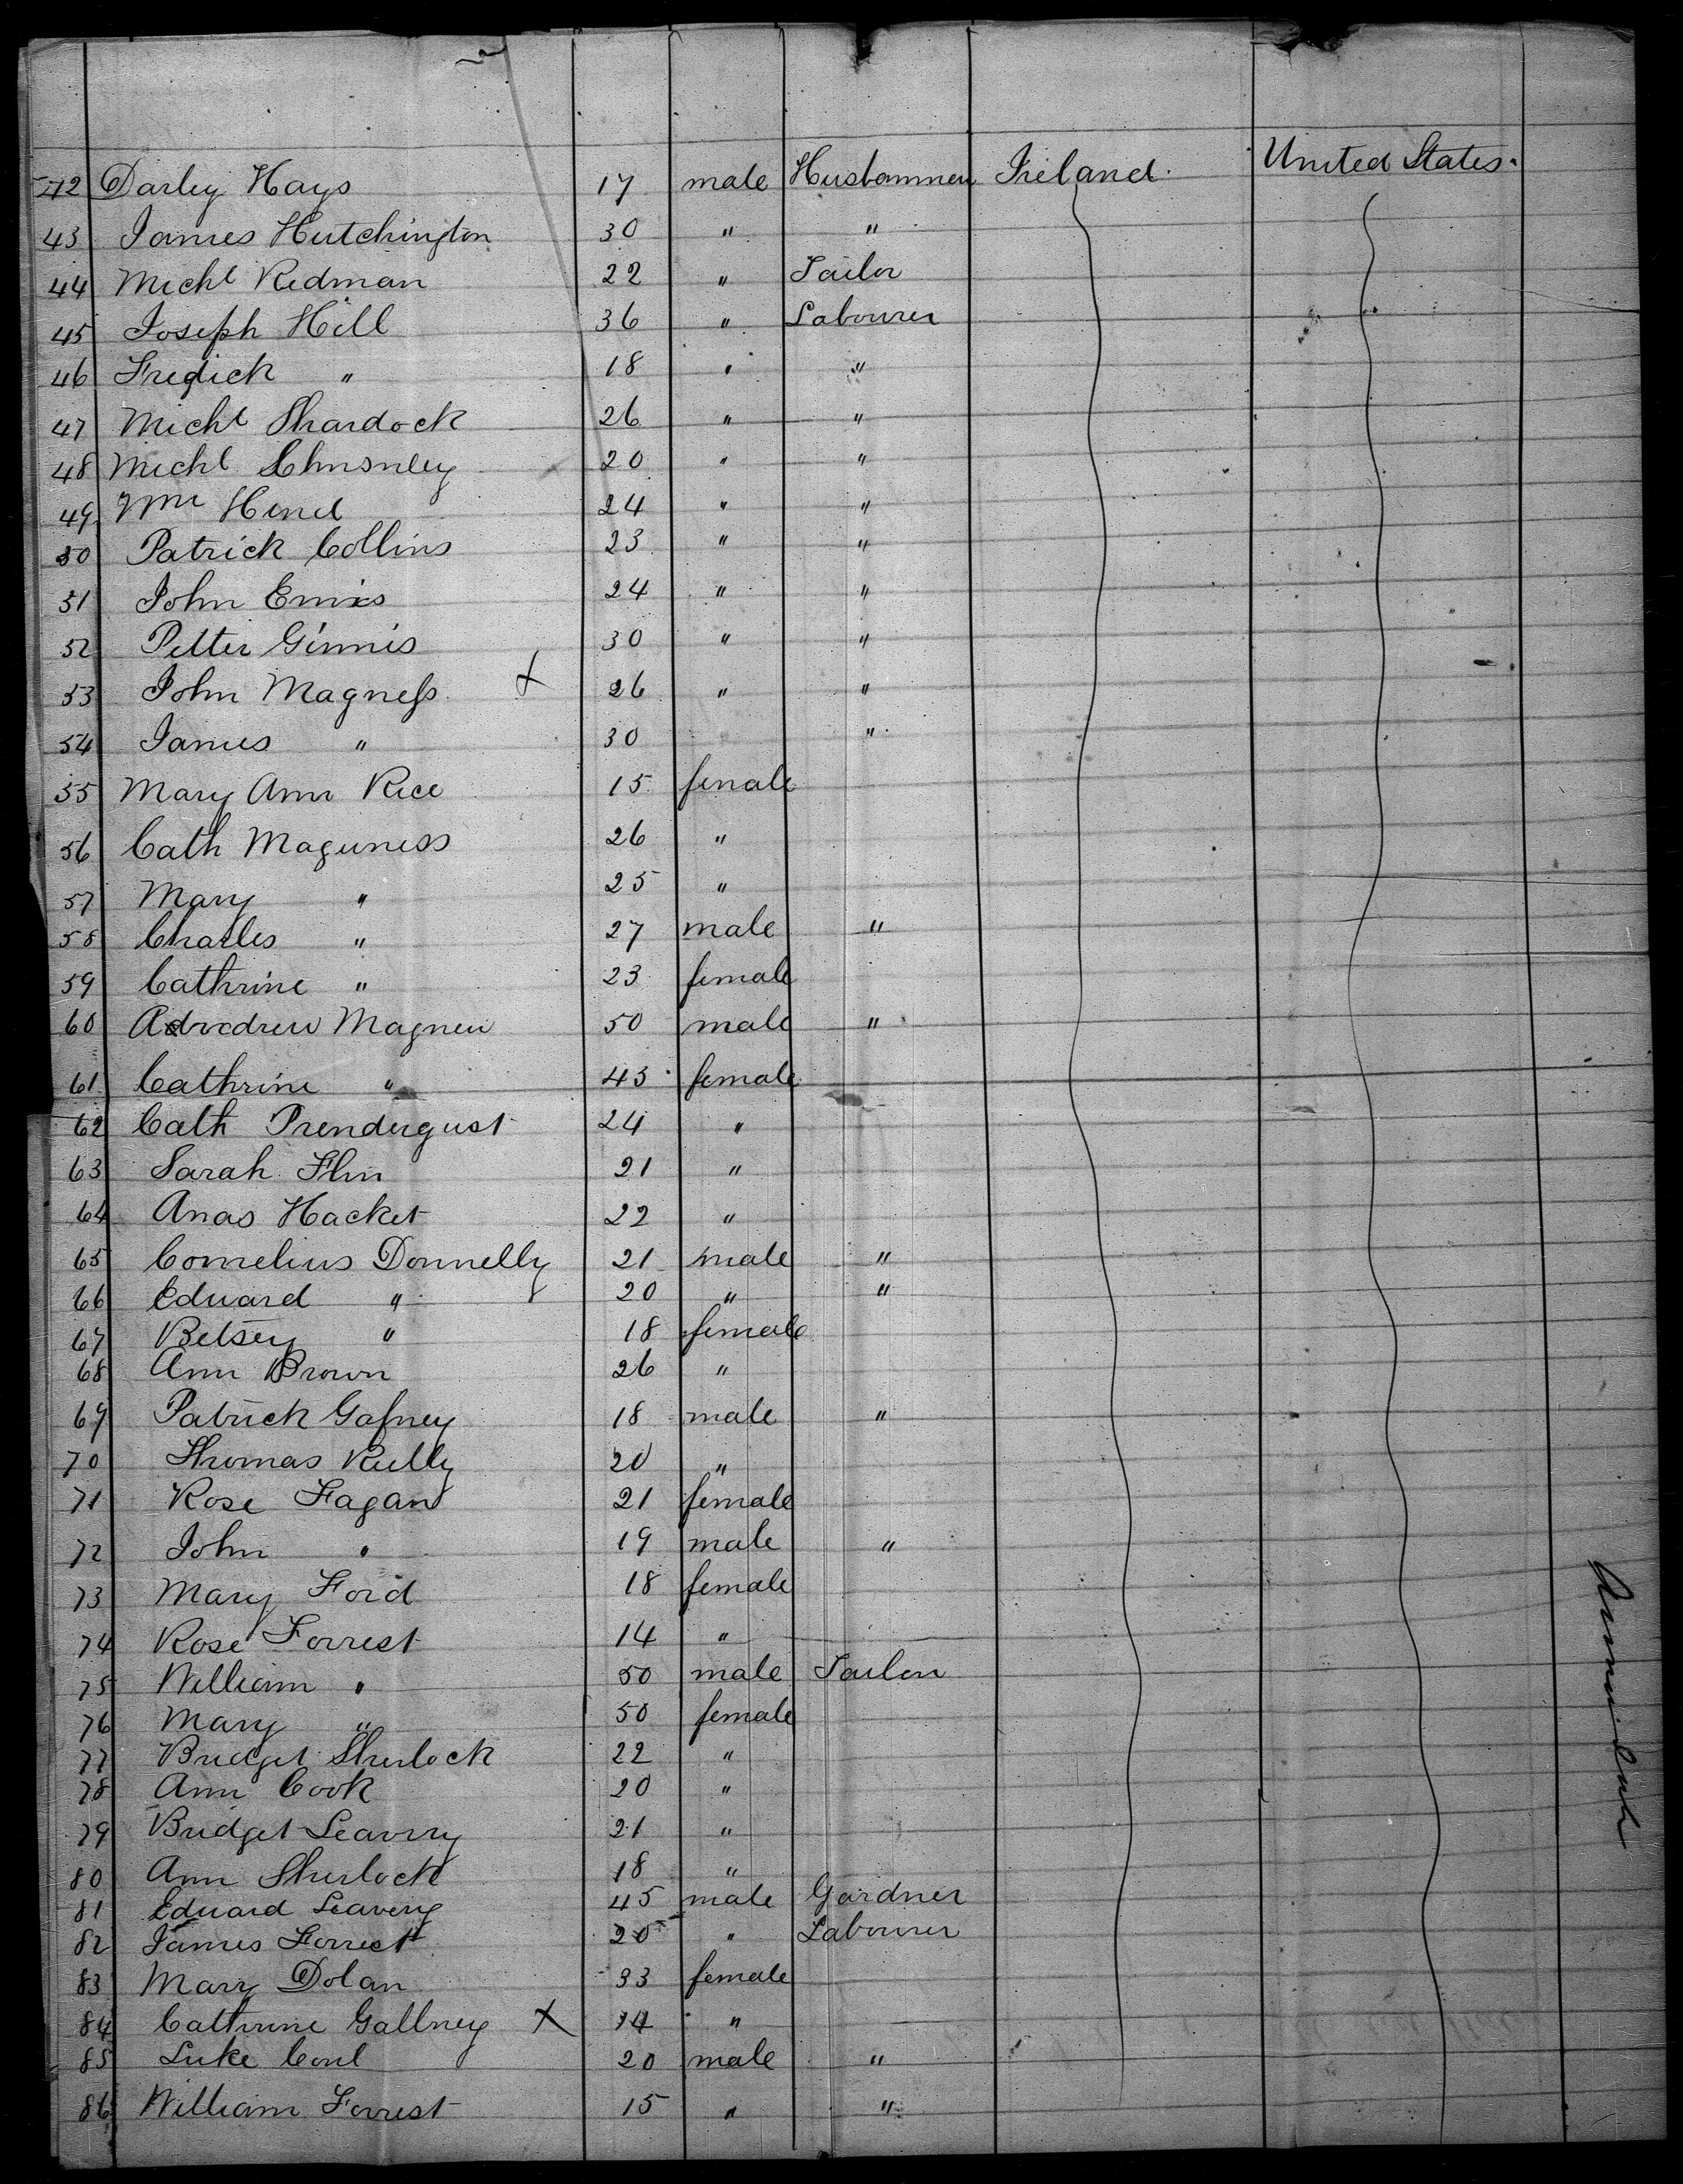 42 Darley Hays 17 male Husbanmen Ireland. United States.
43 James Hutchington 30 " "
44 Michl Redman 22 " Tailor
45 Joseph Hill 36 " Labourer
46 Fredick " 18 " "
47 Michl Shardock 26 " "
48 Michl 20 " "
49 Wm Hind 24 " "
50 Patrick Collins 23 " "
51 John Ennis 24 " "
52 Petter Ginnis 30 " "
53 John Magness X 26 " "
54 James " 30 "
55 Mary Ann Rice 15 female
56 Cath Maguness 26 "
57 Mary " 25 "
58 Charles " 27 male "
59 Cathrine " 23 female
60 Magnew 50 male "
61 Cathrine " 43 female
62 Cath Prendugust 24 "
63 Sarah Flin 21 "
64 Anas Hacket 22 "
65 Cornelius Donnelly 21 male "
66 Edward " 20 " "
67 Betsey " 18 female
68 Ann Brown 26 "
69 Patrick Gafney 18 male "
70 Thomas Rielly 20 "
71 Rose Fagan 21 female
72 John " 19 male "
73 Mary Ford 18 female
74 Rose Forrest 14 "
75 William " 50 male Tailor
76 Mary " 50 female
77 Bridget Sherlock 22 "
78 Ann Cook 20 "
79 Bridget Leavery 21 "
80 Ann Sherlock 18 "
81 Edward Leavery 45 male Gardner
82 James Forrest 20 " Labourer
83 Mary Dolan 33 female
84 Cathrine Gallney X 14 "
85 Luke 20 male "
86 William Forrest 15 " "